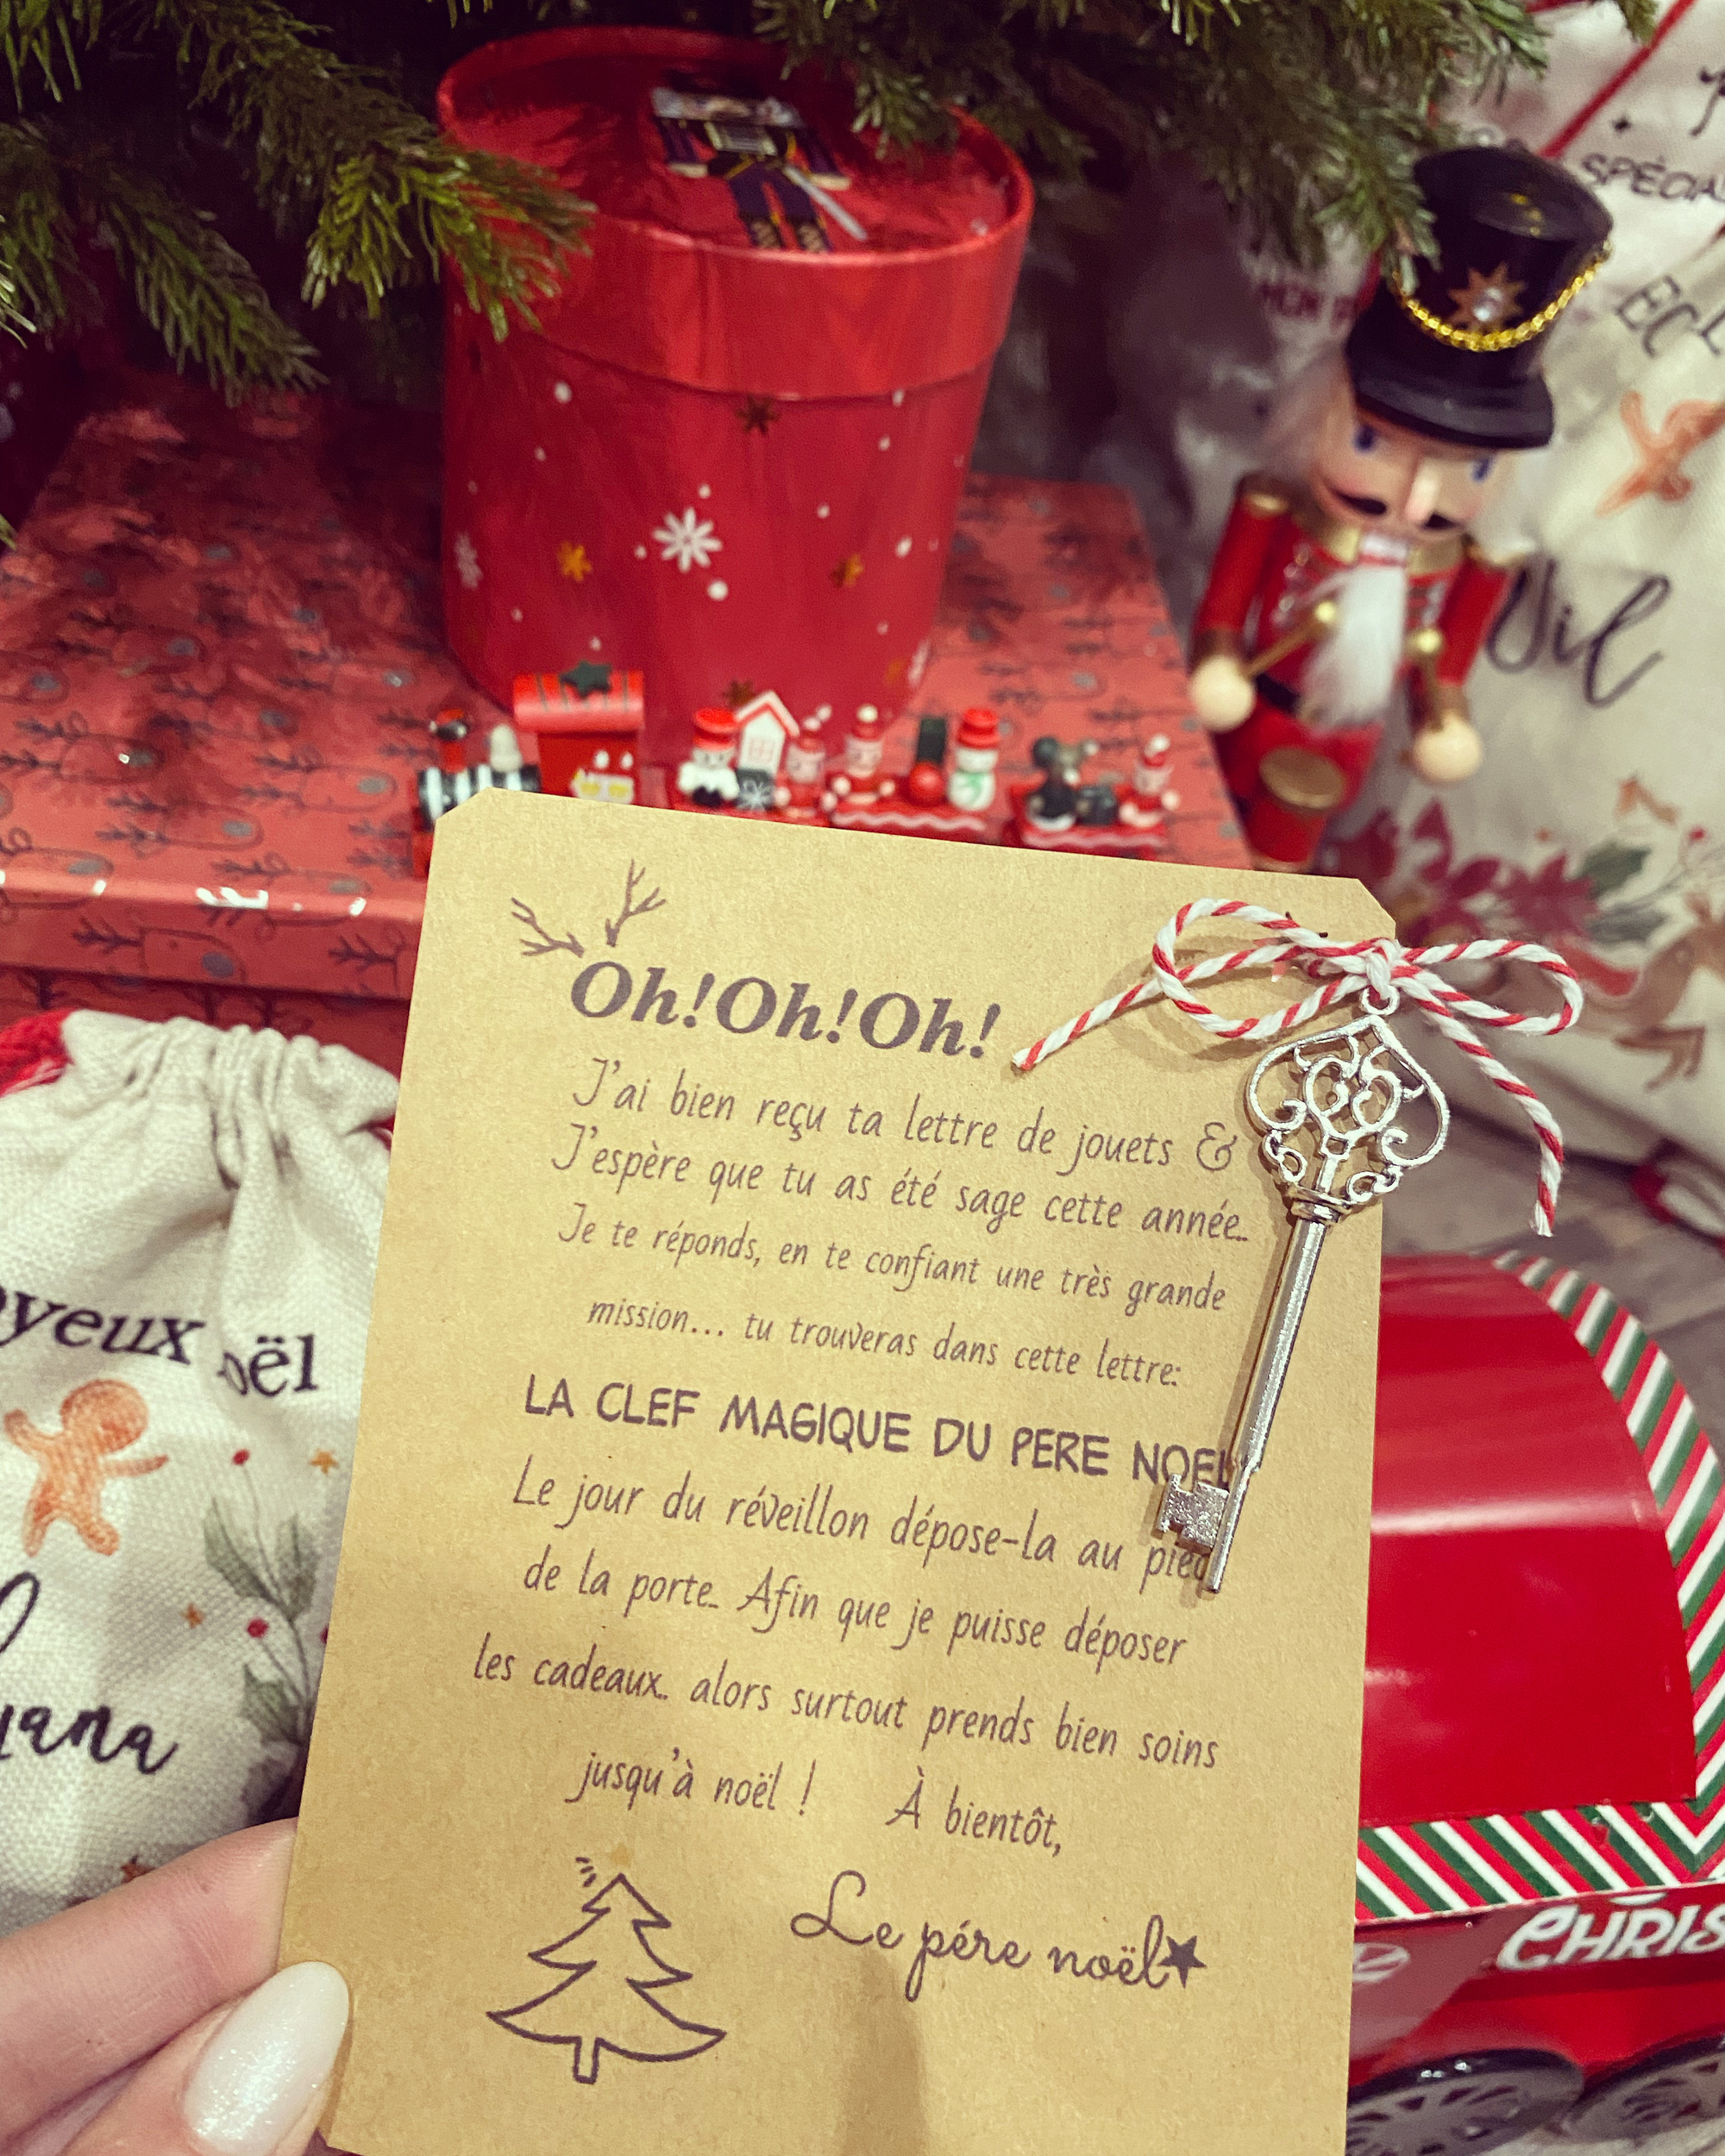 SPÉCIA
Oh!Oh!Oh!
J'ai bien reçu ta lettre de jouets &
J'espère que tu as été sage cette année..
Je te réponds, en te confiant une très grande
mission... tu trouveras dans cette lettre:
LA CLEF MAGIQUE DU PERE NOEL
Le jour du réveillon dépose-la au pied
de la porte.. Afin que je puisse déposer
les cadeaux.. alors surtout prends bien soins
jusqu'à noël ! À bientôt,
Le pére noël★
oyeux oël
yana
CHRIS